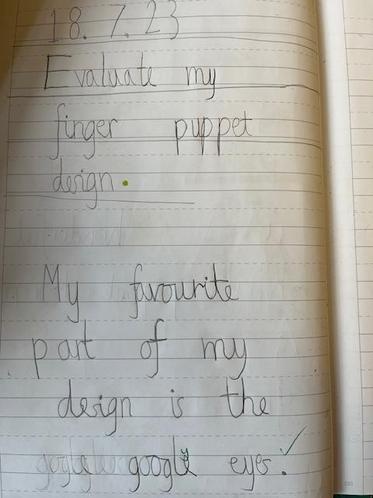 18.7.23
Evaluate my
finger puppet
design.
My favourite
part of my
design is the
googly eyes.